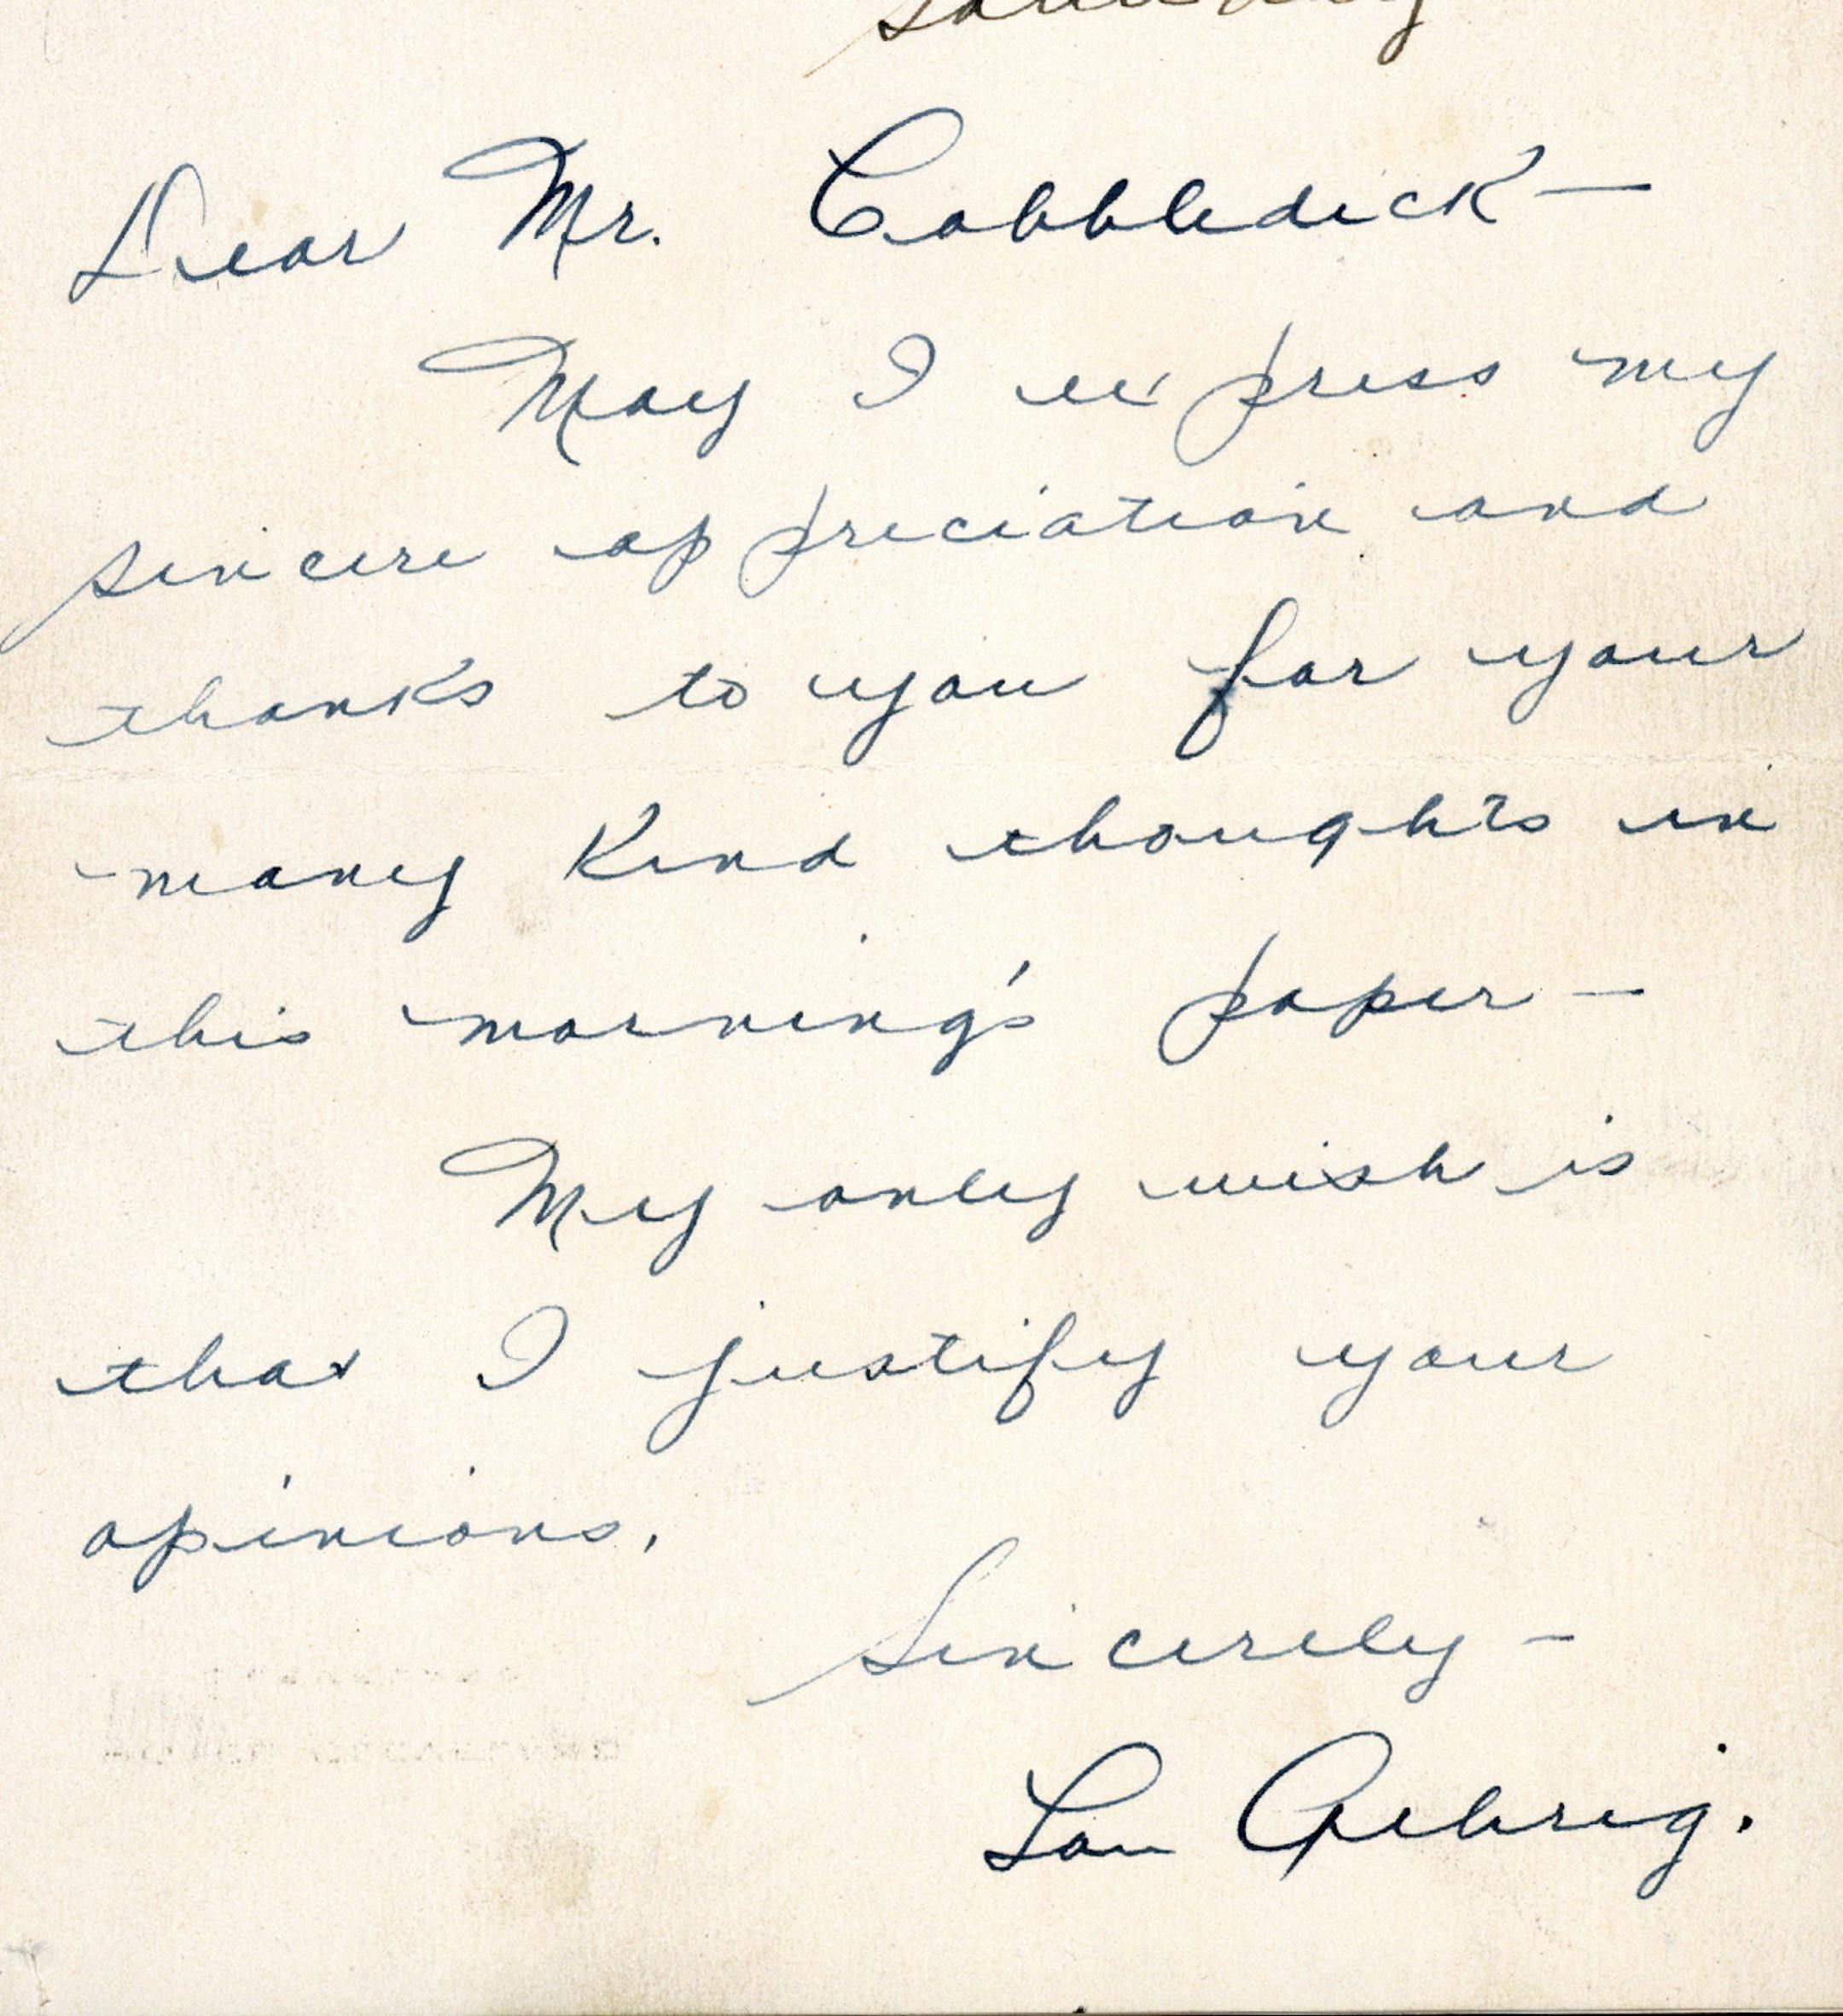 Dear Mr. Cobbledick —
May I express my
sincere appreciation and
thanks to you for your
many kind thoughts in
this morning's paper —
My only wish is
that I justify your
opinions.
Sincerely —
Lou Gehrig.